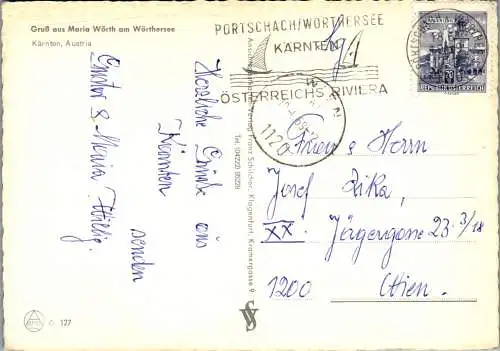 Gruß aus Maria Wörth am Wörthersee
Kärnten, Austria
PÖRTSCHACH/WÖRTHERSEE
KÄRNTEN
ÖSTERREICHS RIVIERA
WIEN
1120
Herzliche Grüße aus
Kärnten
senden
Ernst & Maria
Tel. (04222) 85229
Verlag Franz Schilcher, Klagenfurt, Kramergasse 9
Frau & Herrn
Josef Zika,
XX. Jägergasse 23 3/18
1200 Wien.
C 127